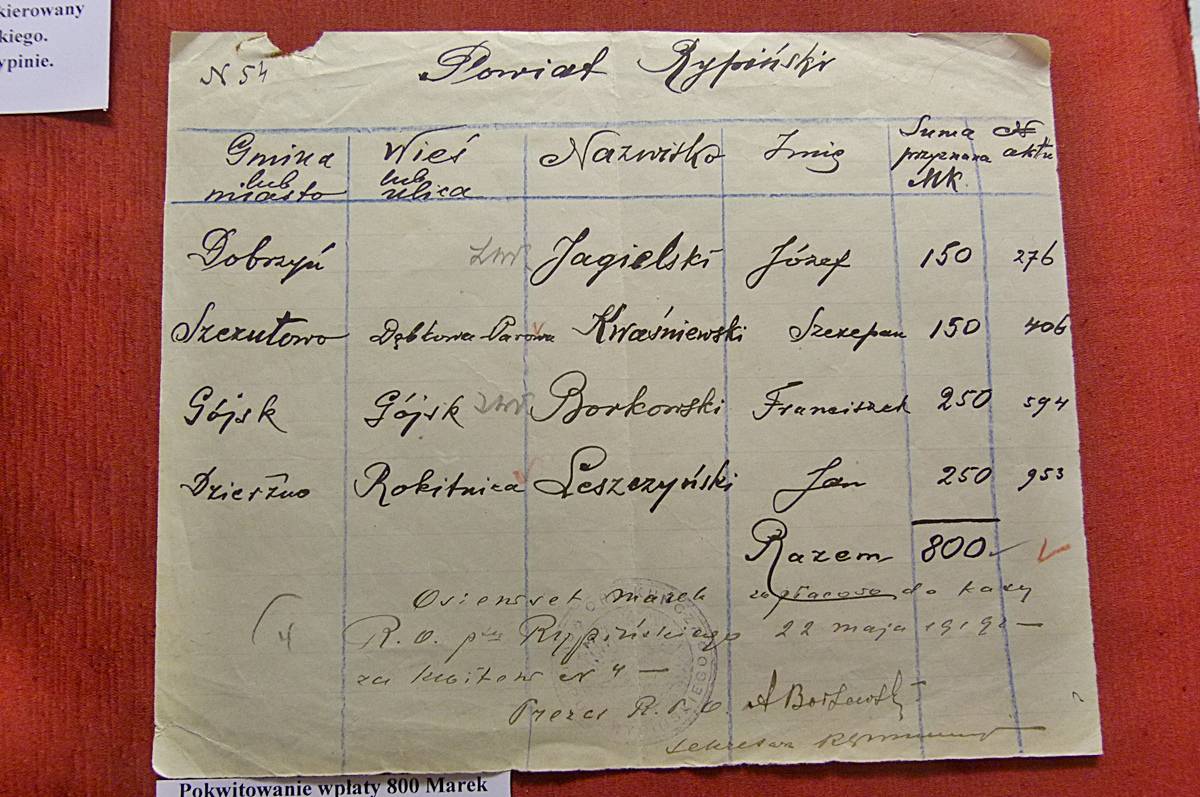 kierowany
kiego.
ypinie.
N 54
Powiat Rypiński
Gmina lub miasto Wieś lub ulica Nazwisko Imię Suma przyznana Mk. N aktu
Dobrzyń Jagielski Józef 150 276
Szczutowo Kwaśniewski Szczepan 150 406
Gójsk Gójsk Borkowski Franciszek 250 594
Dzierżno Rokitnica Leszczyński Jan 250 953
Razem 800
Osiemset marek do kasy
4 R.O. Rypińskiego 22 maja 1919
za kwitem N 4 —
Prezes R.P.O.
Pokwitowanie wpłaty 800 Marek